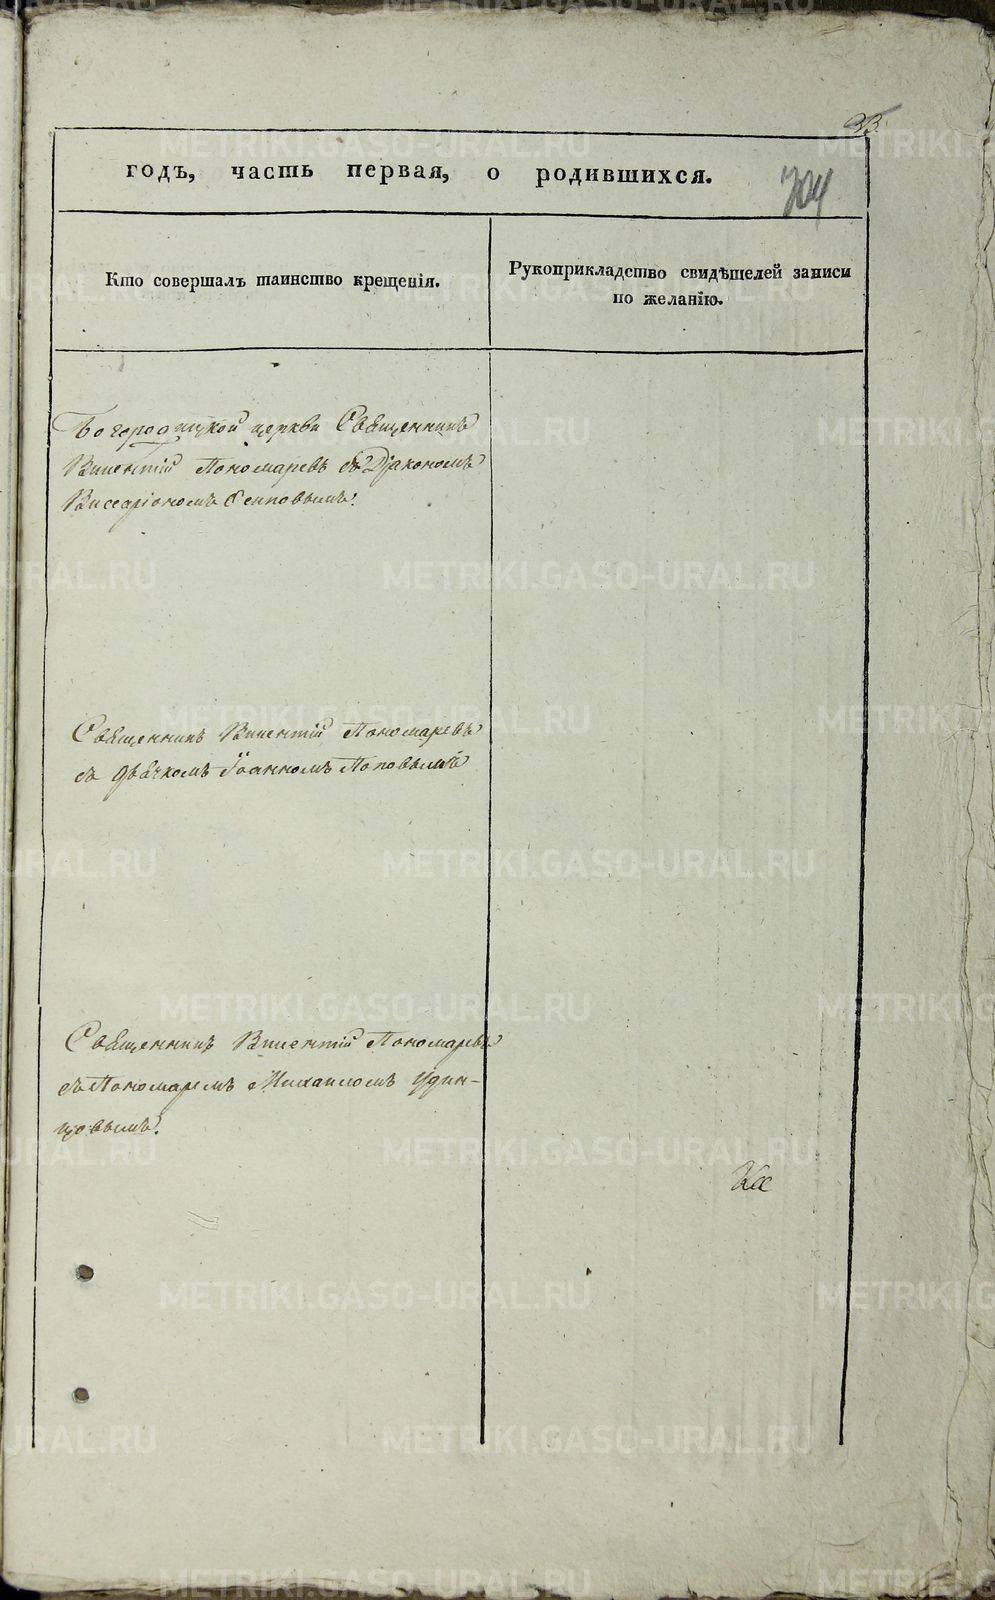 33.
годъ, часть первая, о родившихся.
704
Кто совершалъ таинство крещенія.
Рукоприкладство свидѣтелей записи
по желанію.
Богородицкой церкви Священникъ
Викентій Пономаревъ съ Діакономъ
Виссаріономъ
Священникъ Викентій Пономаревъ
съ дьячкомъ Іоанномъ Поповымъ
Священникъ Викентій Пономаревъ
съ Пономаремъ Михаиломъ Удин-
цовымъ.
METRIKI.GASO-URAL.RU